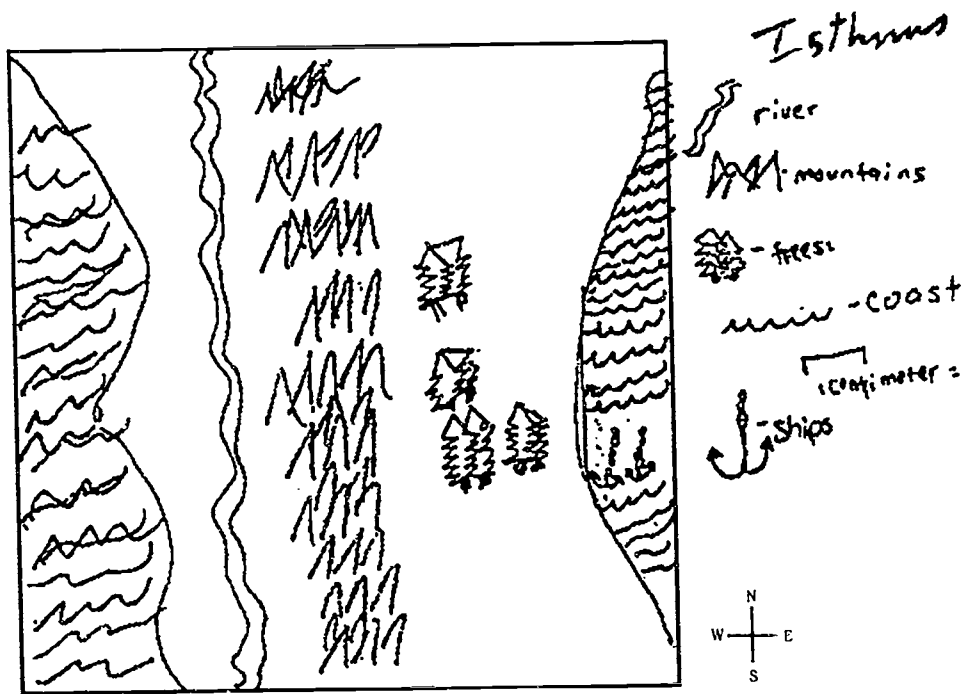 Isthmus
river
mountains
- trees
- coast
1 centimeter =
- ships
N
W E
S